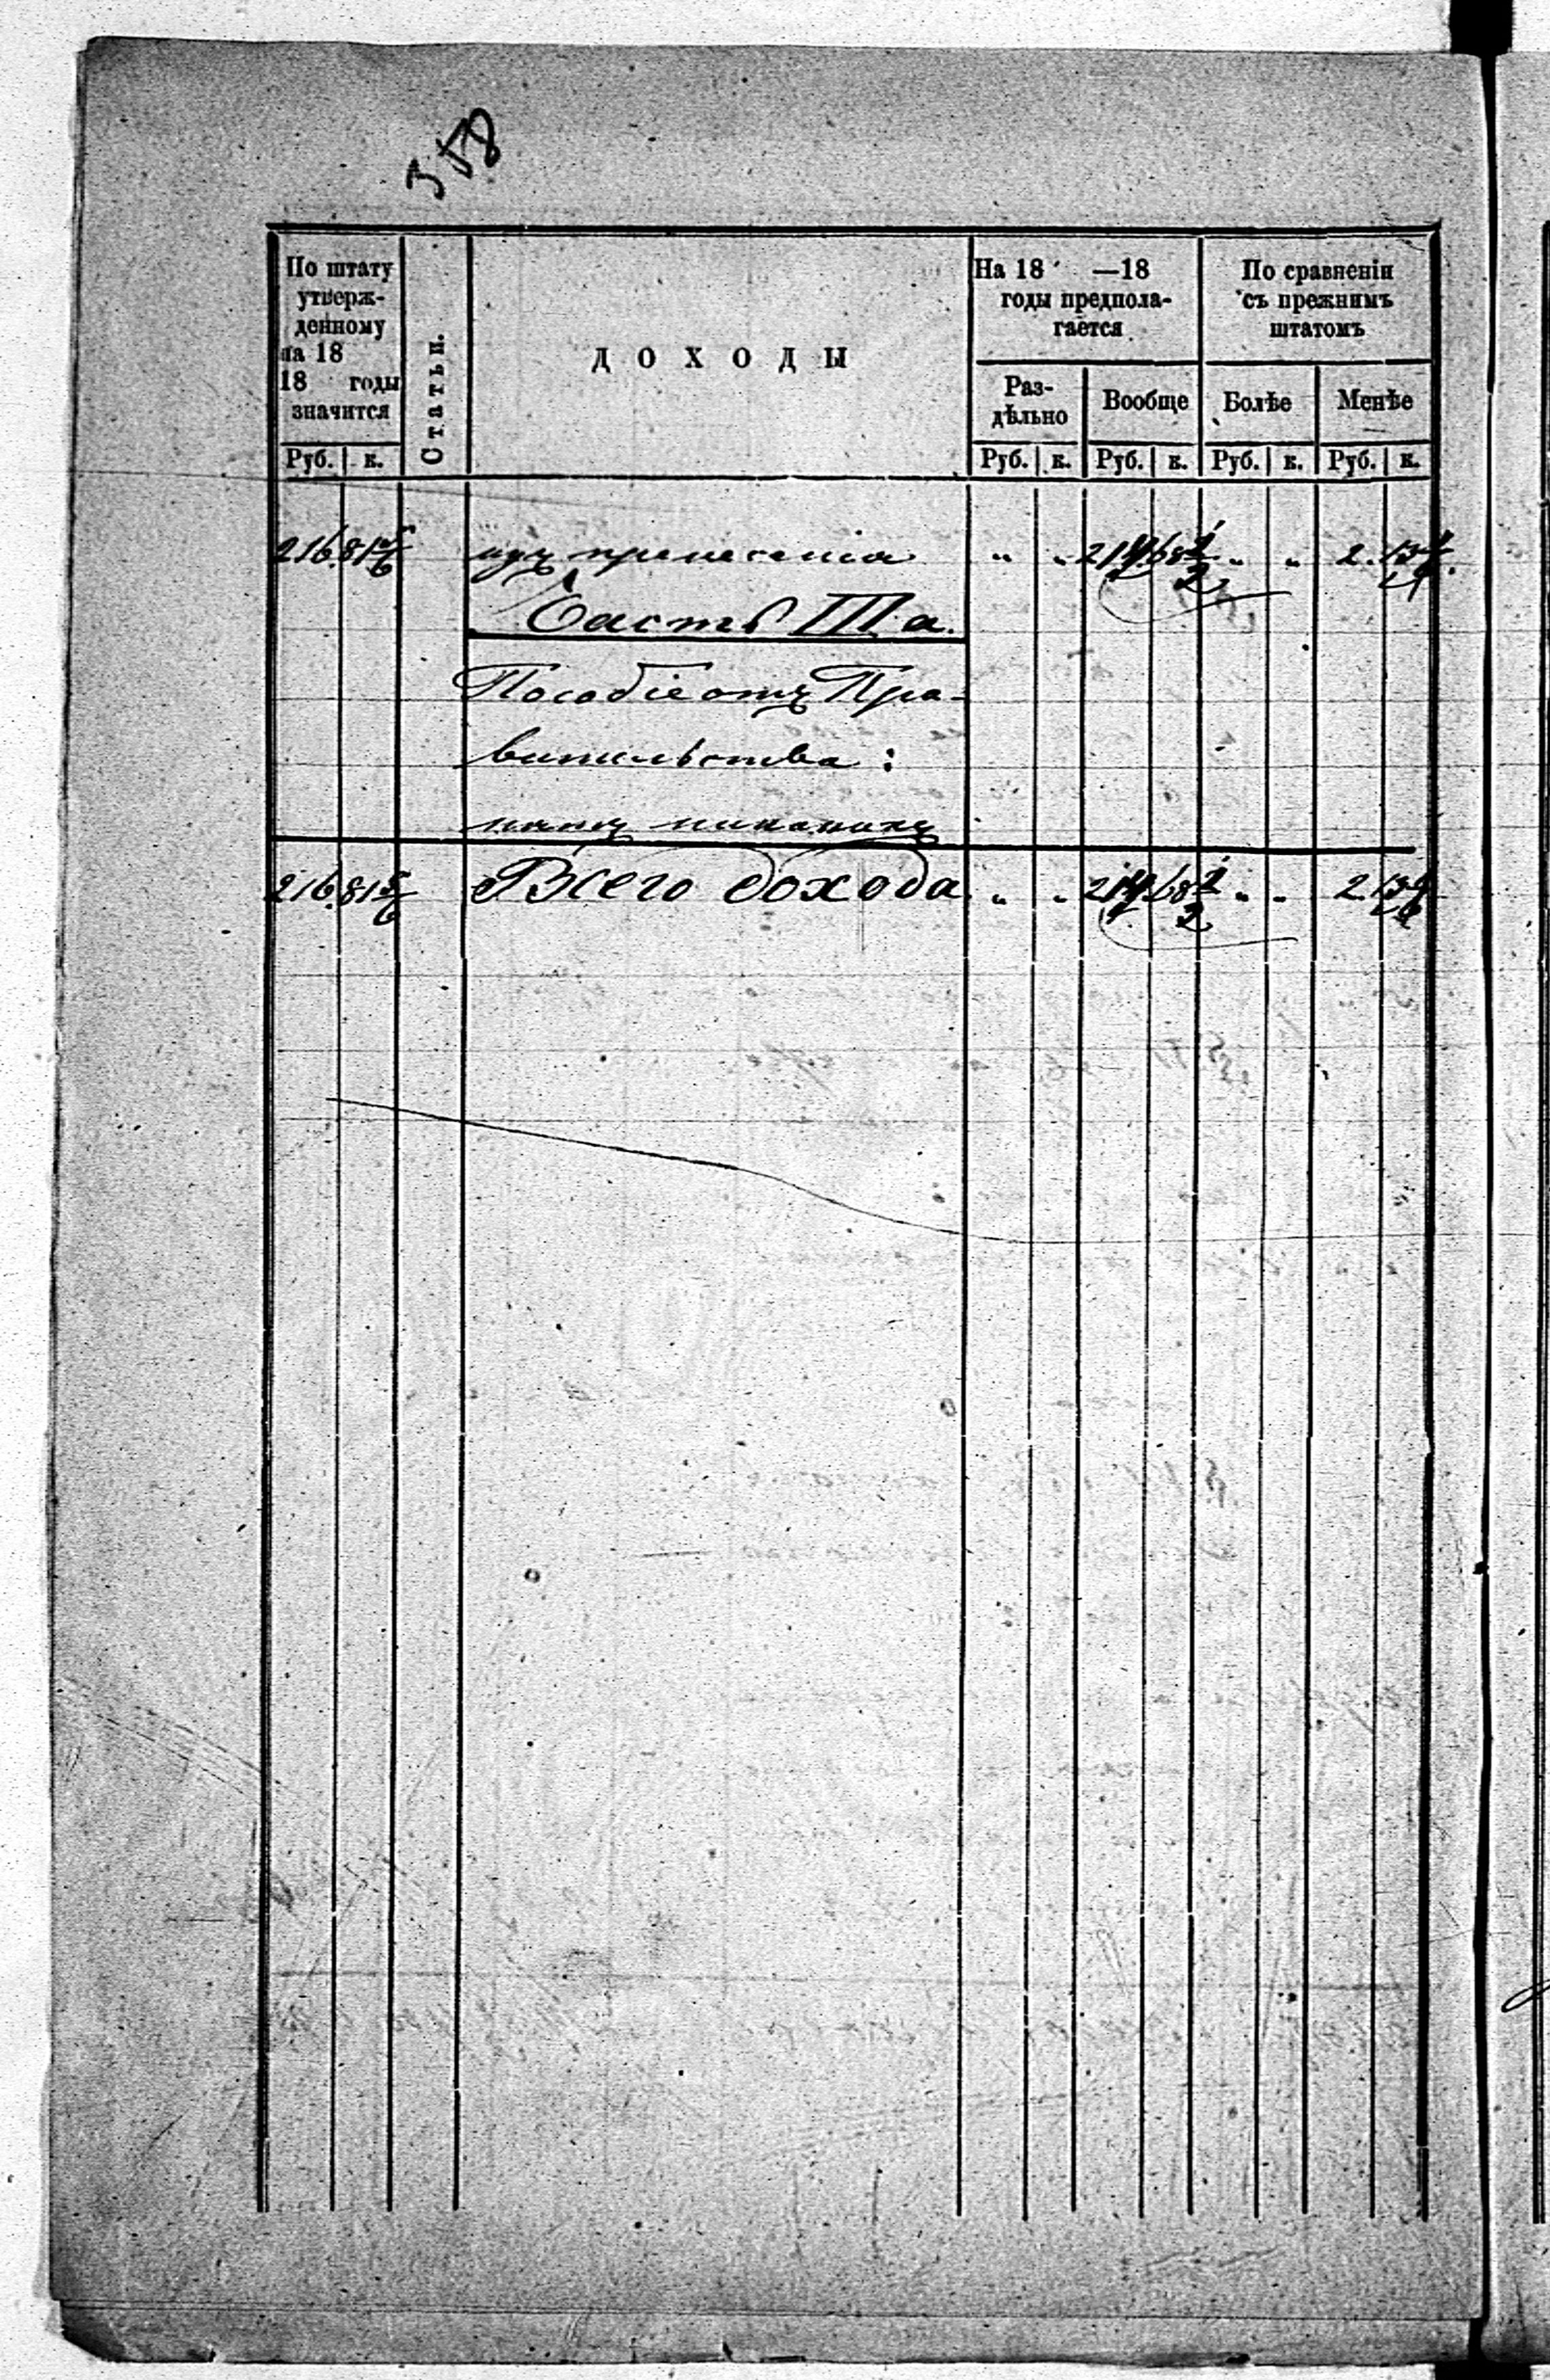 358
По штату утверж-
денному
на 18
18 годы
значится
Руб. к.
Статьи.
ДОХОДЫ
На 18 —18
годы предпола-
гается
Раз-
дѣльно
Руб. к.
Вообще
Руб. к.
По сравненіи
съ прежнимъ
штатомъ
Болѣе
Руб. к.
Менѣе
Руб. к.
216. 81 5/6 " " 68 1/2 " " 2. 13
Часть III а.
Пособіе отъ Пра-
вительства:
никакихъ
216. 81 5/6 Всего дохода " " 68 1/2 " " 2. 13